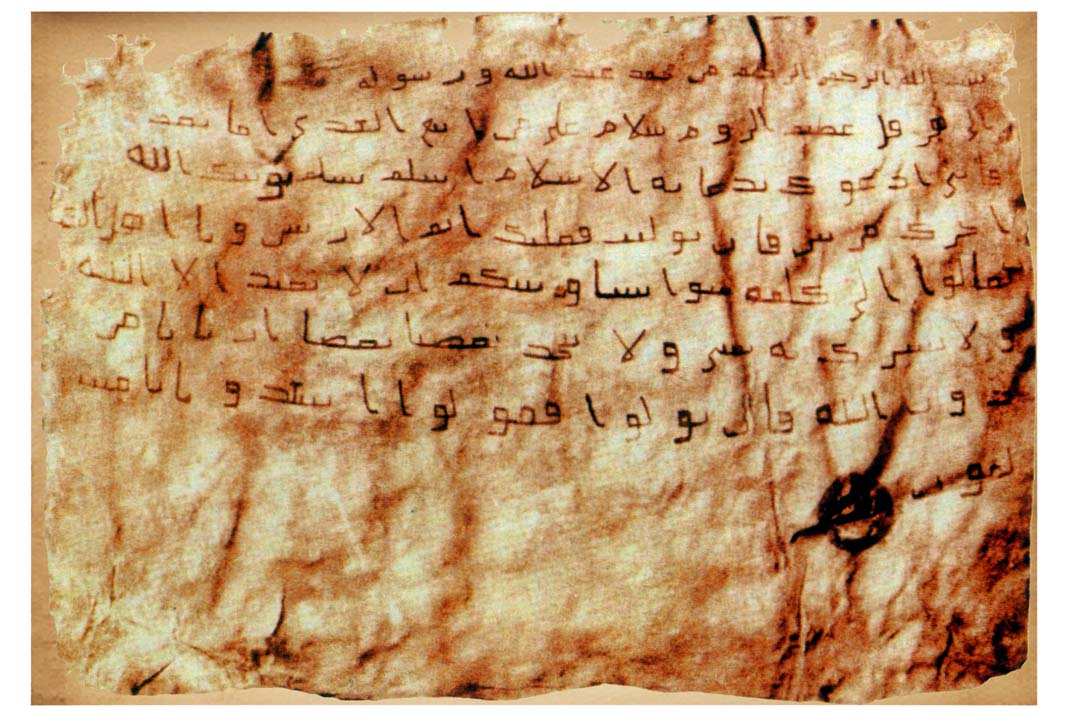 بسم الله الرحمن الرحيم من محمد عبد الله ورسوله
إلى هرقل عظيم الروم سلام على من اتبع الهدى اما بعد
فانى ادعوك بدعاية الاسلام اسلم تسلم يوتك الله
اجرك مرتين فان توليت فعليك اثم الاريسين ويا اهل
تعالوا الى كلمة سوا بيننا وبينكم ان لا نعبد الا الله
ولا نشرك به شى ولا يتخذ بعضنا بعضا اربابا من
دون الله فان تولوا فقولوا اشهدوا بانا مسلمون